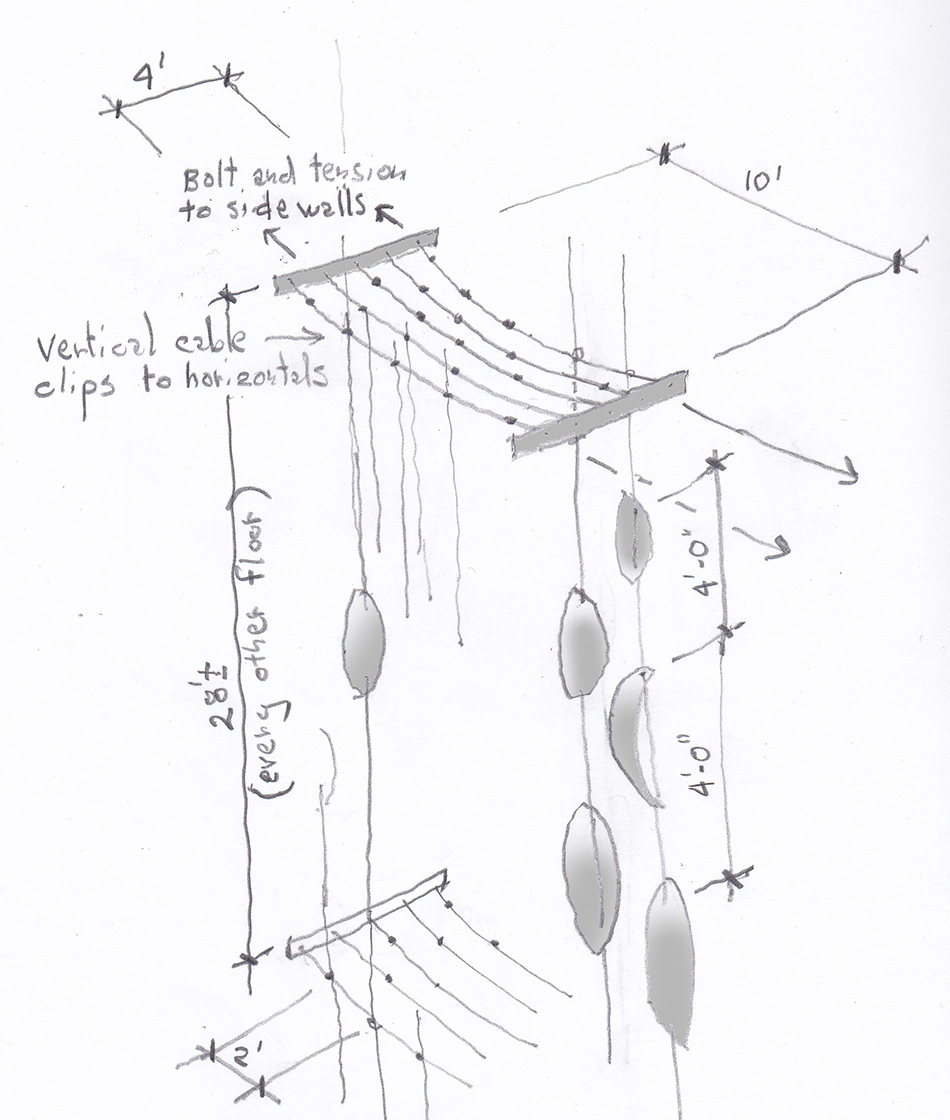 4'
Bolt and tension
to side walls
10'
Vertical cable
clips to horizontals
28'±
(every other floor)
4'-0"
4'-0"
2'